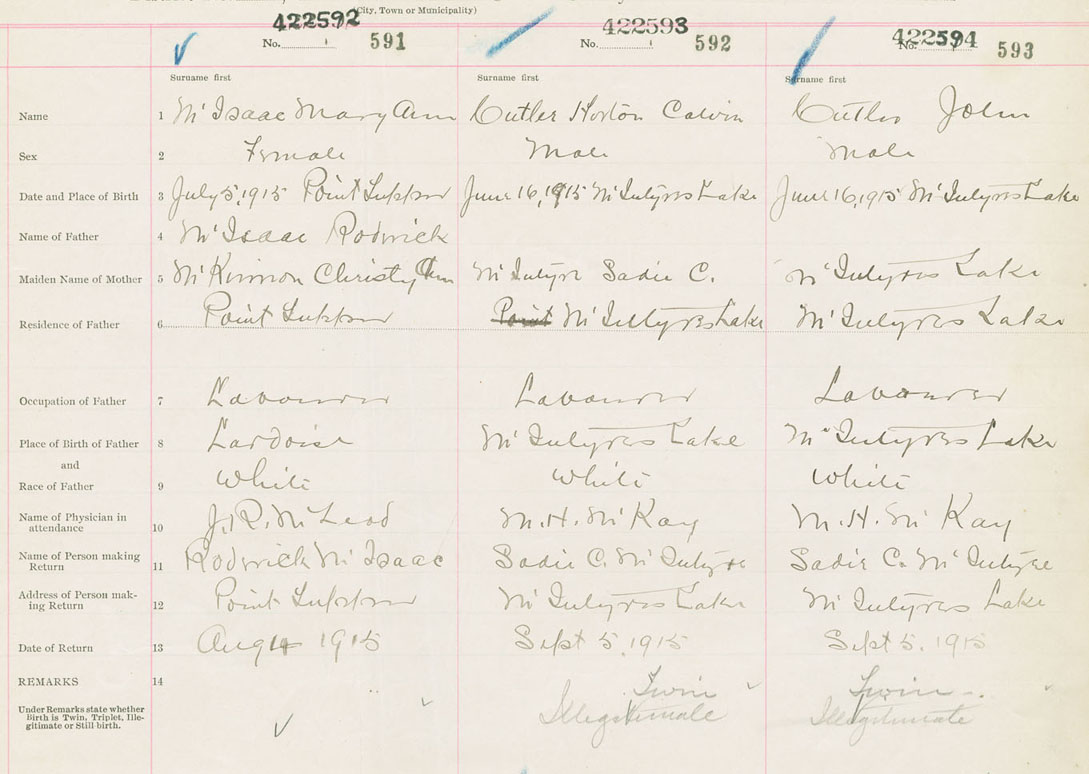 (City, Town or Municipality)
422592 422593 422594
No. 591 No. 592 No. 593
Surname first Surname first Surname first
Name 1 McIsaac Mary Ann Cutler Horton Calvin Cutler John
Sex 2 Female Male Male
Date and Place of Birth 3 July 5, 1915 Point Tupper June 16, 1915 McIntyres Lake June 16, 1915 McIntyres Lake
Name of Father 4 McIsaac Roderick
Maiden Name of Mother 5 McKinnon Christy Ann McIntyre Sadie C. McIntyres Lake
Residence of Father 6 Point Tupper Point McIntyres Lake McIntyres Lake
Occupation of Father 7 Labourer Labourer Labourer
Place of Birth of Father 8 Lardoise McIntyres Lake McIntyres Lake
and
Race of Father 9 White White White
Name of Physician in
attendance 10 J. R. McLeod M. H. McKay M. H. McKay
Name of Person making
Return 11 Roderick McIsaac Sadie C. McIntyre Sadie C. McIntyre
Address of Person mak-
ing Return 12 Point Tupper McIntyres Lake McIntyres Lake
Date of Return 13 Aug 1915 Sept 5, 1915 Sept 5, 1915
REMARKS 14 Twin Twin
Under Remarks state whether
Birth is Twin, Triplet, Ille-
gitimate or Still birth. Illegitimate Illegitimate